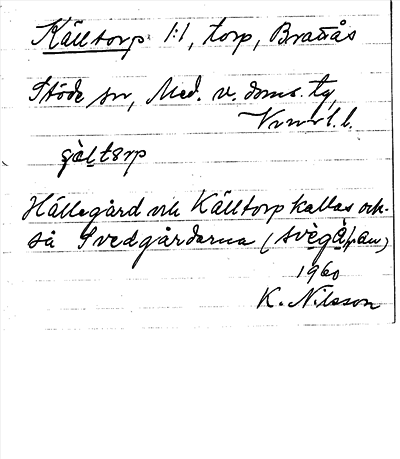 Källtorp 1:1, torp, Brattås
Stöde sn, Med. v. doms. tg,
Vnorl. l.
Hällegård vik Källtorp kallas ock-
så Svedgårdarna (
1960
K. Nilsson